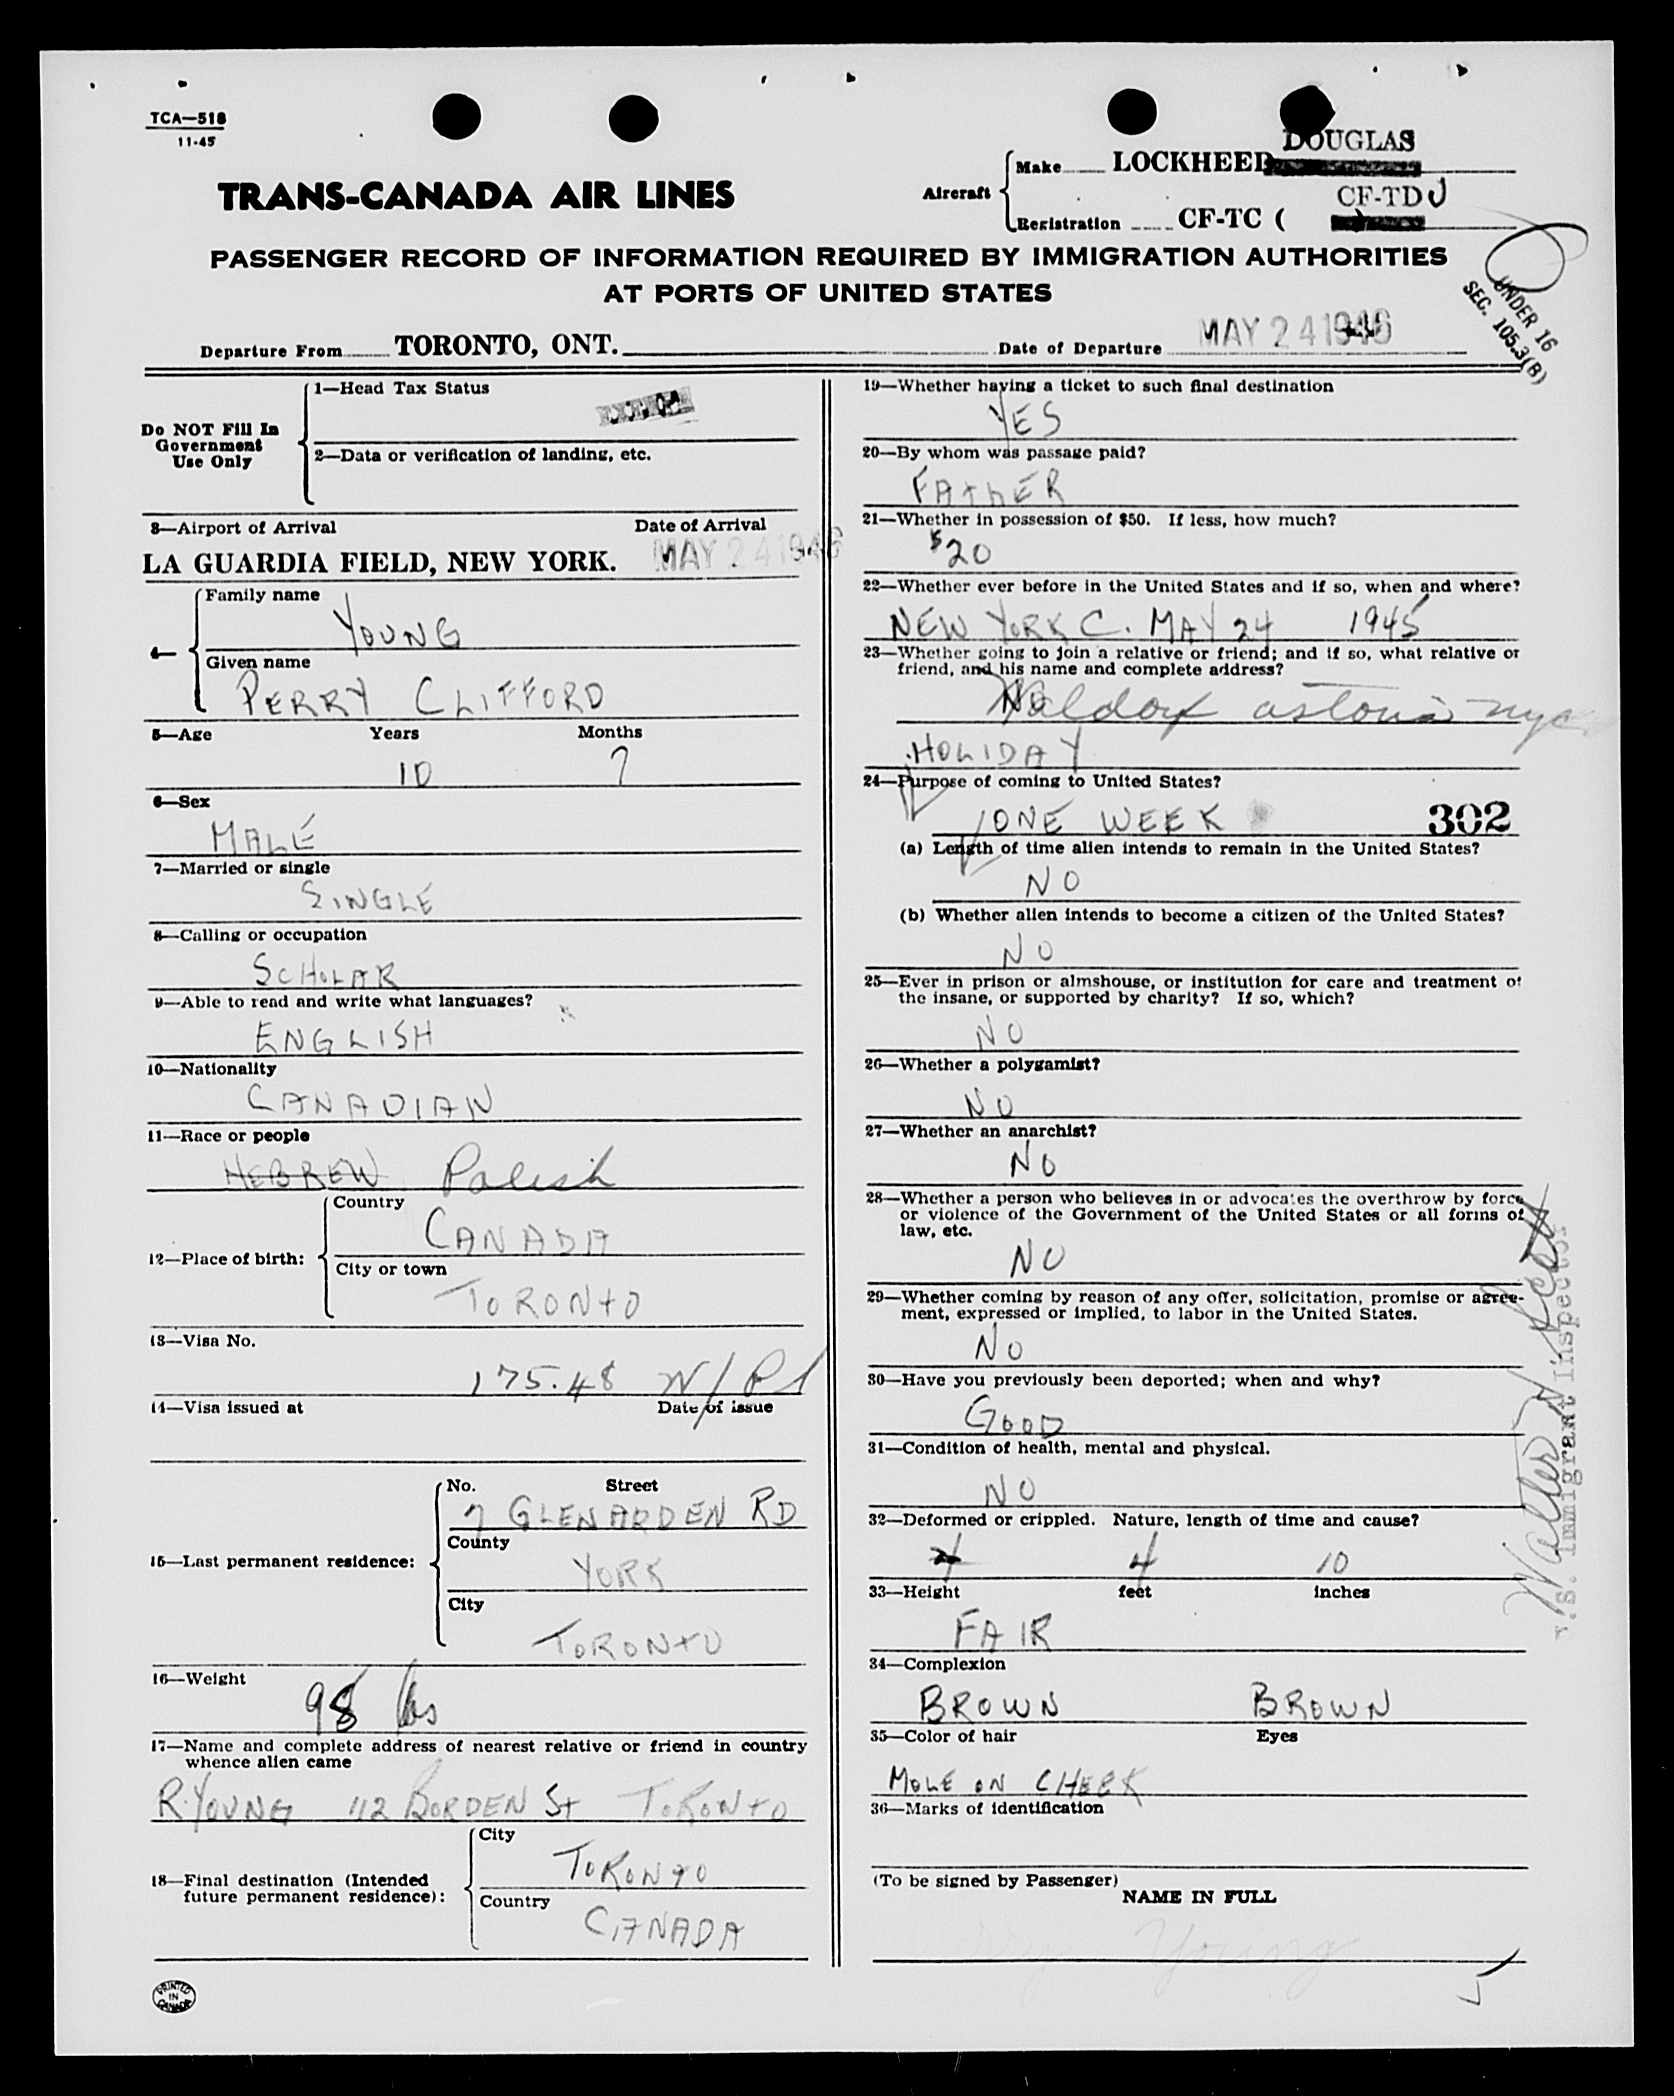 TCA—518
11-45
TRANS-CANADA AIR LINES
Aircraft
Make LOCKHEED DOUGLAS
Registration CF-TC ( CF-TDJ
PASSENGER RECORD OF INFORMATION REQUIRED BY IMMIGRATION AUTHORITIES
AT PORTS OF UNITED STATES
UNDER 16
SEC. 105.3(B)
Departure From TORONTO, ONT. Date of Departure MAY 24 1946
Do NOT Fill In
Government
Use Only
1—Head Tax Status
2—Data or verification of landing, etc.
3—Airport of Arrival Date of Arrival
LA GUARDIA FIELD, NEW YORK. MAY 24 1946
4—
Family name
YOUNG
Given name
PERRY CLIFFORD
5—Age Years Months
10 7
6—Sex
MALE
7—Married or single
SINGLE
8—Calling or occupation
SCHOLAR
9—Able to read and write what languages?
ENGLISH
10—Nationality
CANADIAN
11—Race or people
HEBREW Polish
12—Place of birth:
Country
CANADA
City or town
TORONTO
13—Visa No.
175.48
14—Visa issued at Date of issue
15—Last permanent residence:
No. Street
7 GLENARDEN RD
County
YORK
City
TORONTO
16—Weight
98 lbs
17—Name and complete address of nearest relative or friend in country
whence alien came
R. YOUNG 112 BORDEN St TORONTO
18—Final destination (Intended
future permanent residence):
City
TORONTO
Country
CANADA
PRINTED
IN
CANADA
19—Whether having a ticket to such final destination
YES
20—By whom was passage paid?
FATHER
21—Whether in possession of $50. If less, how much?
$20
22—Whether ever before in the United States and if so, when and where?
NEW YORK C. MAY 24 1945
23—Whether going to join a relative or friend; and if so, what relative or
friend, and his name and complete address?
Waldorf astoria nyc
HOLIDAY
24—Purpose of coming to United States?
ONE WEEK 302
(a) Length of time alien intends to remain in the United States?
NO
(b) Whether alien intends to become a citizen of the United States?
NO
25—Ever in prison or almshouse, or institution for care and treatment of
the insane, or supported by charity? If so, which?
NO
26—Whether a polygamist?
NO
27—Whether an anarchist?
NO
28—Whether a person who believes in or advocates the overthrow by force
or violence of the Government of the United States or all forms of
law, etc.
NO
29—Whether coming by reason of any offer, solicitation, promise or agree-
ment, expressed or implied, to labor in the United States.
NO
30—Have you previously been deported; when and why?
GOOD
31—Condition of health, mental and physical.
NO
32—Deformed or crippled. Nature, length of time and cause?
4 10
33—Height feet inches
FAIR
34—Complexion
BROWN BROWN
35—Color of hair Eyes
MOLE ON CHEEK
36—Marks of identification
(To be signed by Passenger)
NAME IN FULL
Young
Walter Scott
U.S. Immigrant Inspector